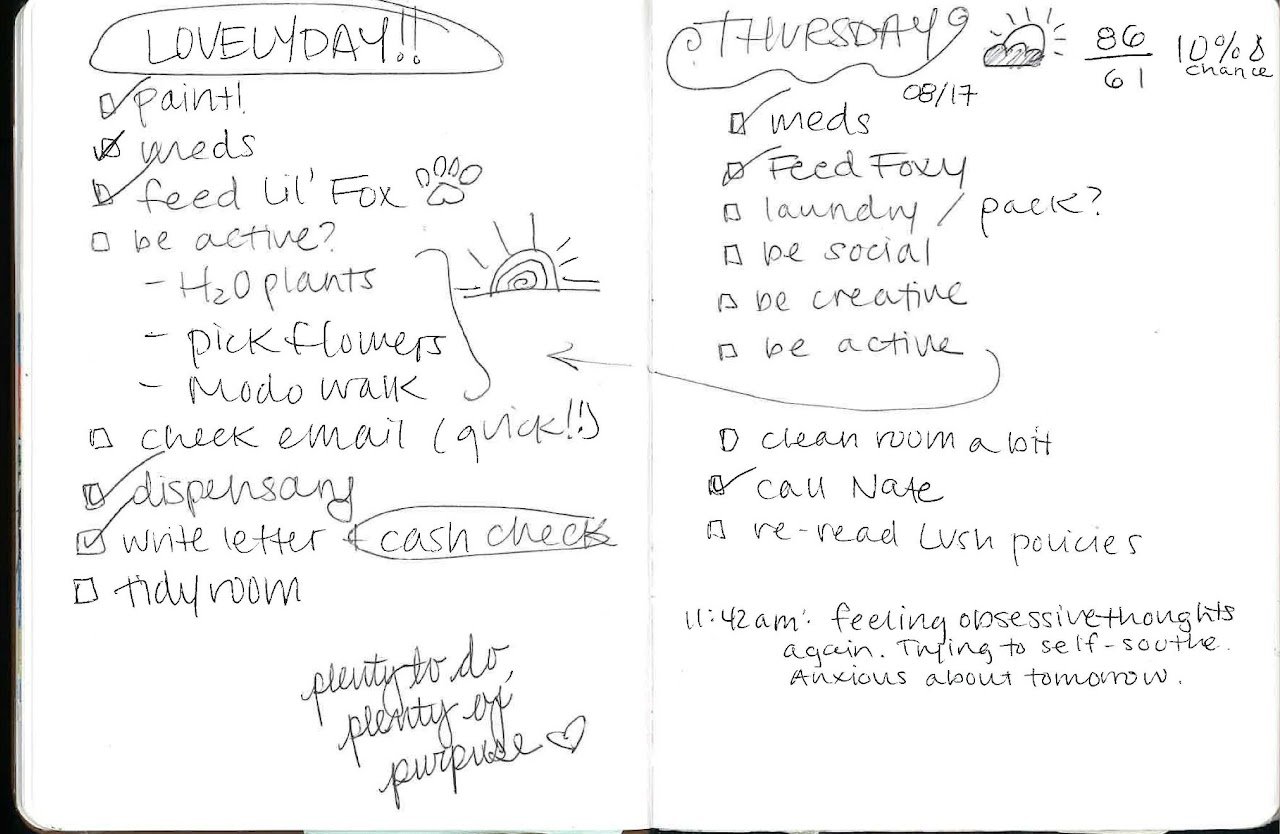 LOVELYDAY!!
paint!
meds
feed Lil' Fox
be active?
- H2O plants
- pick flowers
- Modo walk
check email (quick!!)
dispensary
write letter + cash check
tidy room
plenty to do,
plenty of
purpose
THURSDAY
08/17
86
61
10%
chance
meds
Feed Foxy
laundry / pack?
be social
be creative
be active
clean room a bit
call Nate
re-read Lush policies
11:42am: feeling obsessive thoughts
again. Trying to self-soothe.
Anxious about tomorrow.